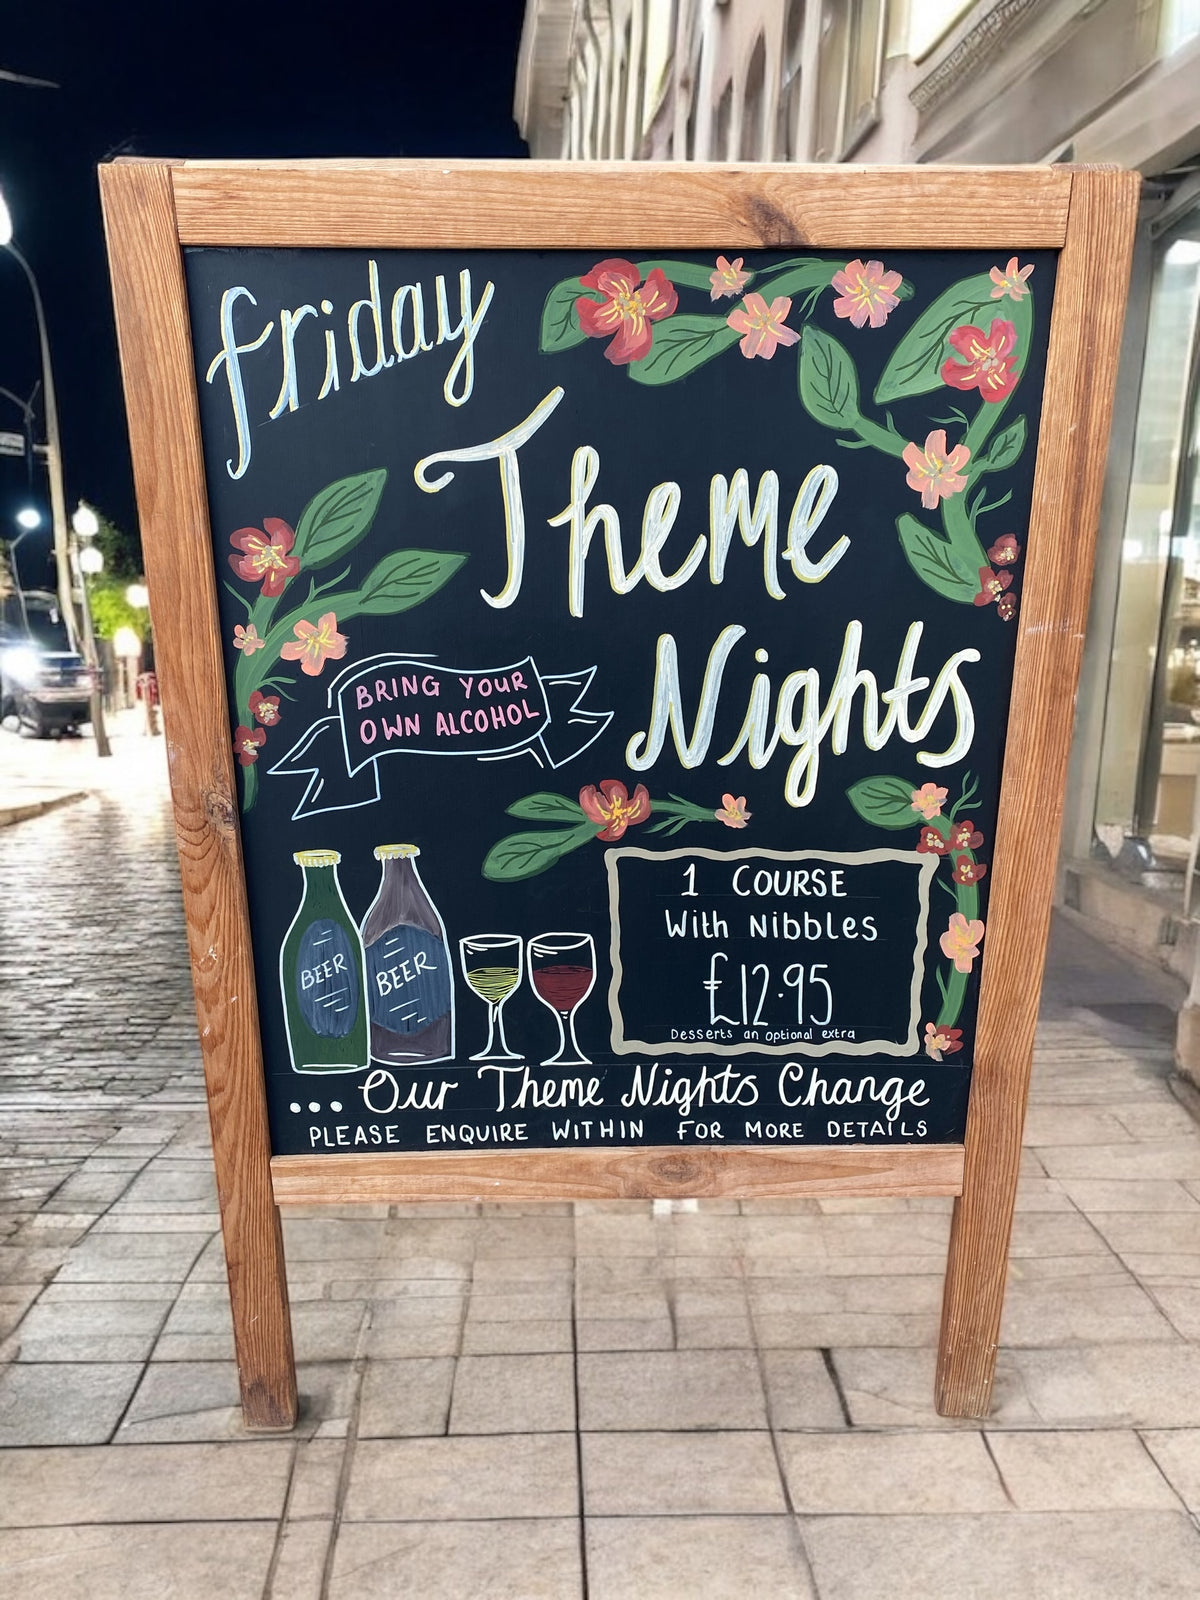 friday
Theme
Nights
BRING YOUR
OWN ALCOHOL
BEER
BEER
1 COURSE
With NibbLes
£12.95
Desserts an optional extra
... Our Theme Nights Change
PLEASE ENQUIRE WITHIN FOR MORE DETAILS